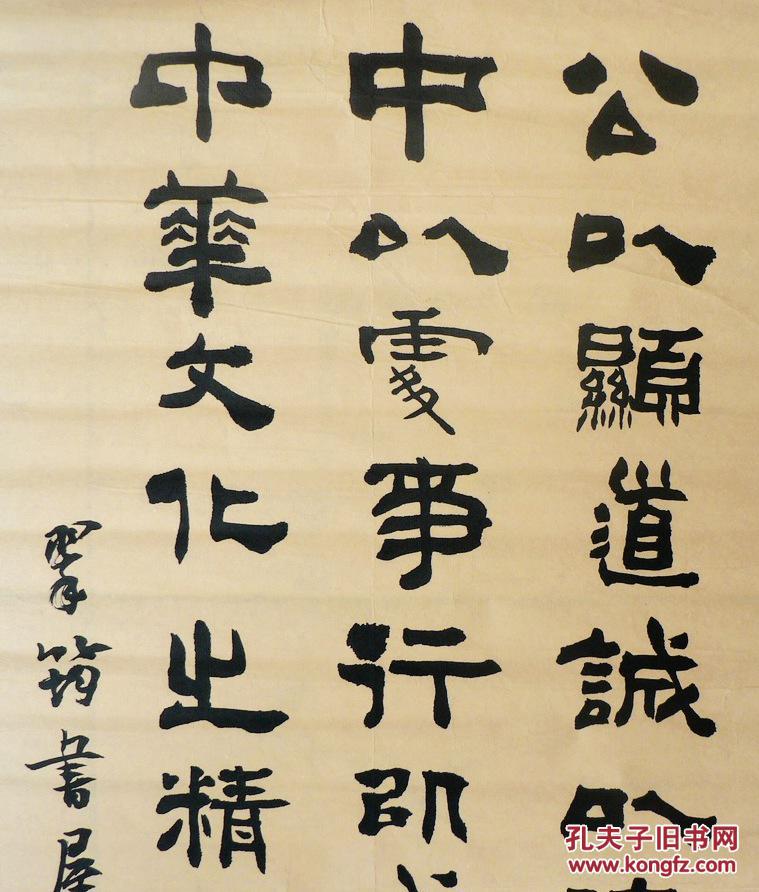 公以顯道誠以
中以處事行即
中華文化之精
翠筠書屋
孔夫子旧书网
www.kongfz.com